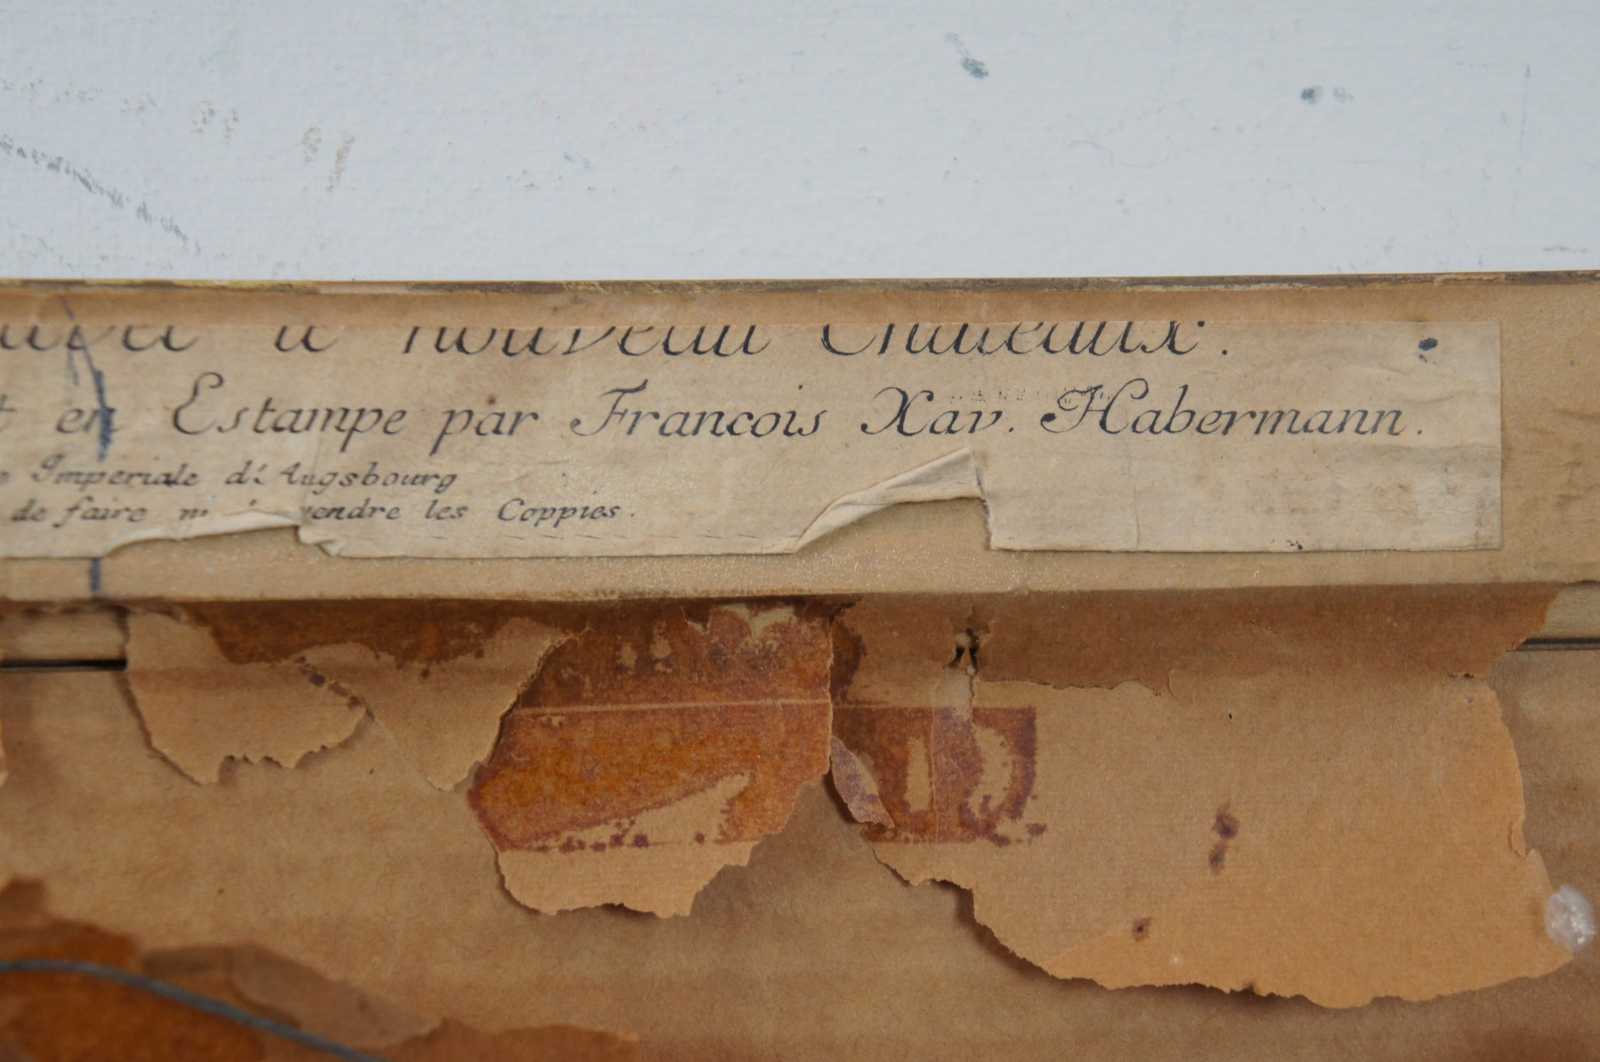 nouveau Chateaux.
t en Estampe par Francois Xav. Habermann.
e Imperiale d'Augsbourg
de faire vendre les Coppies.